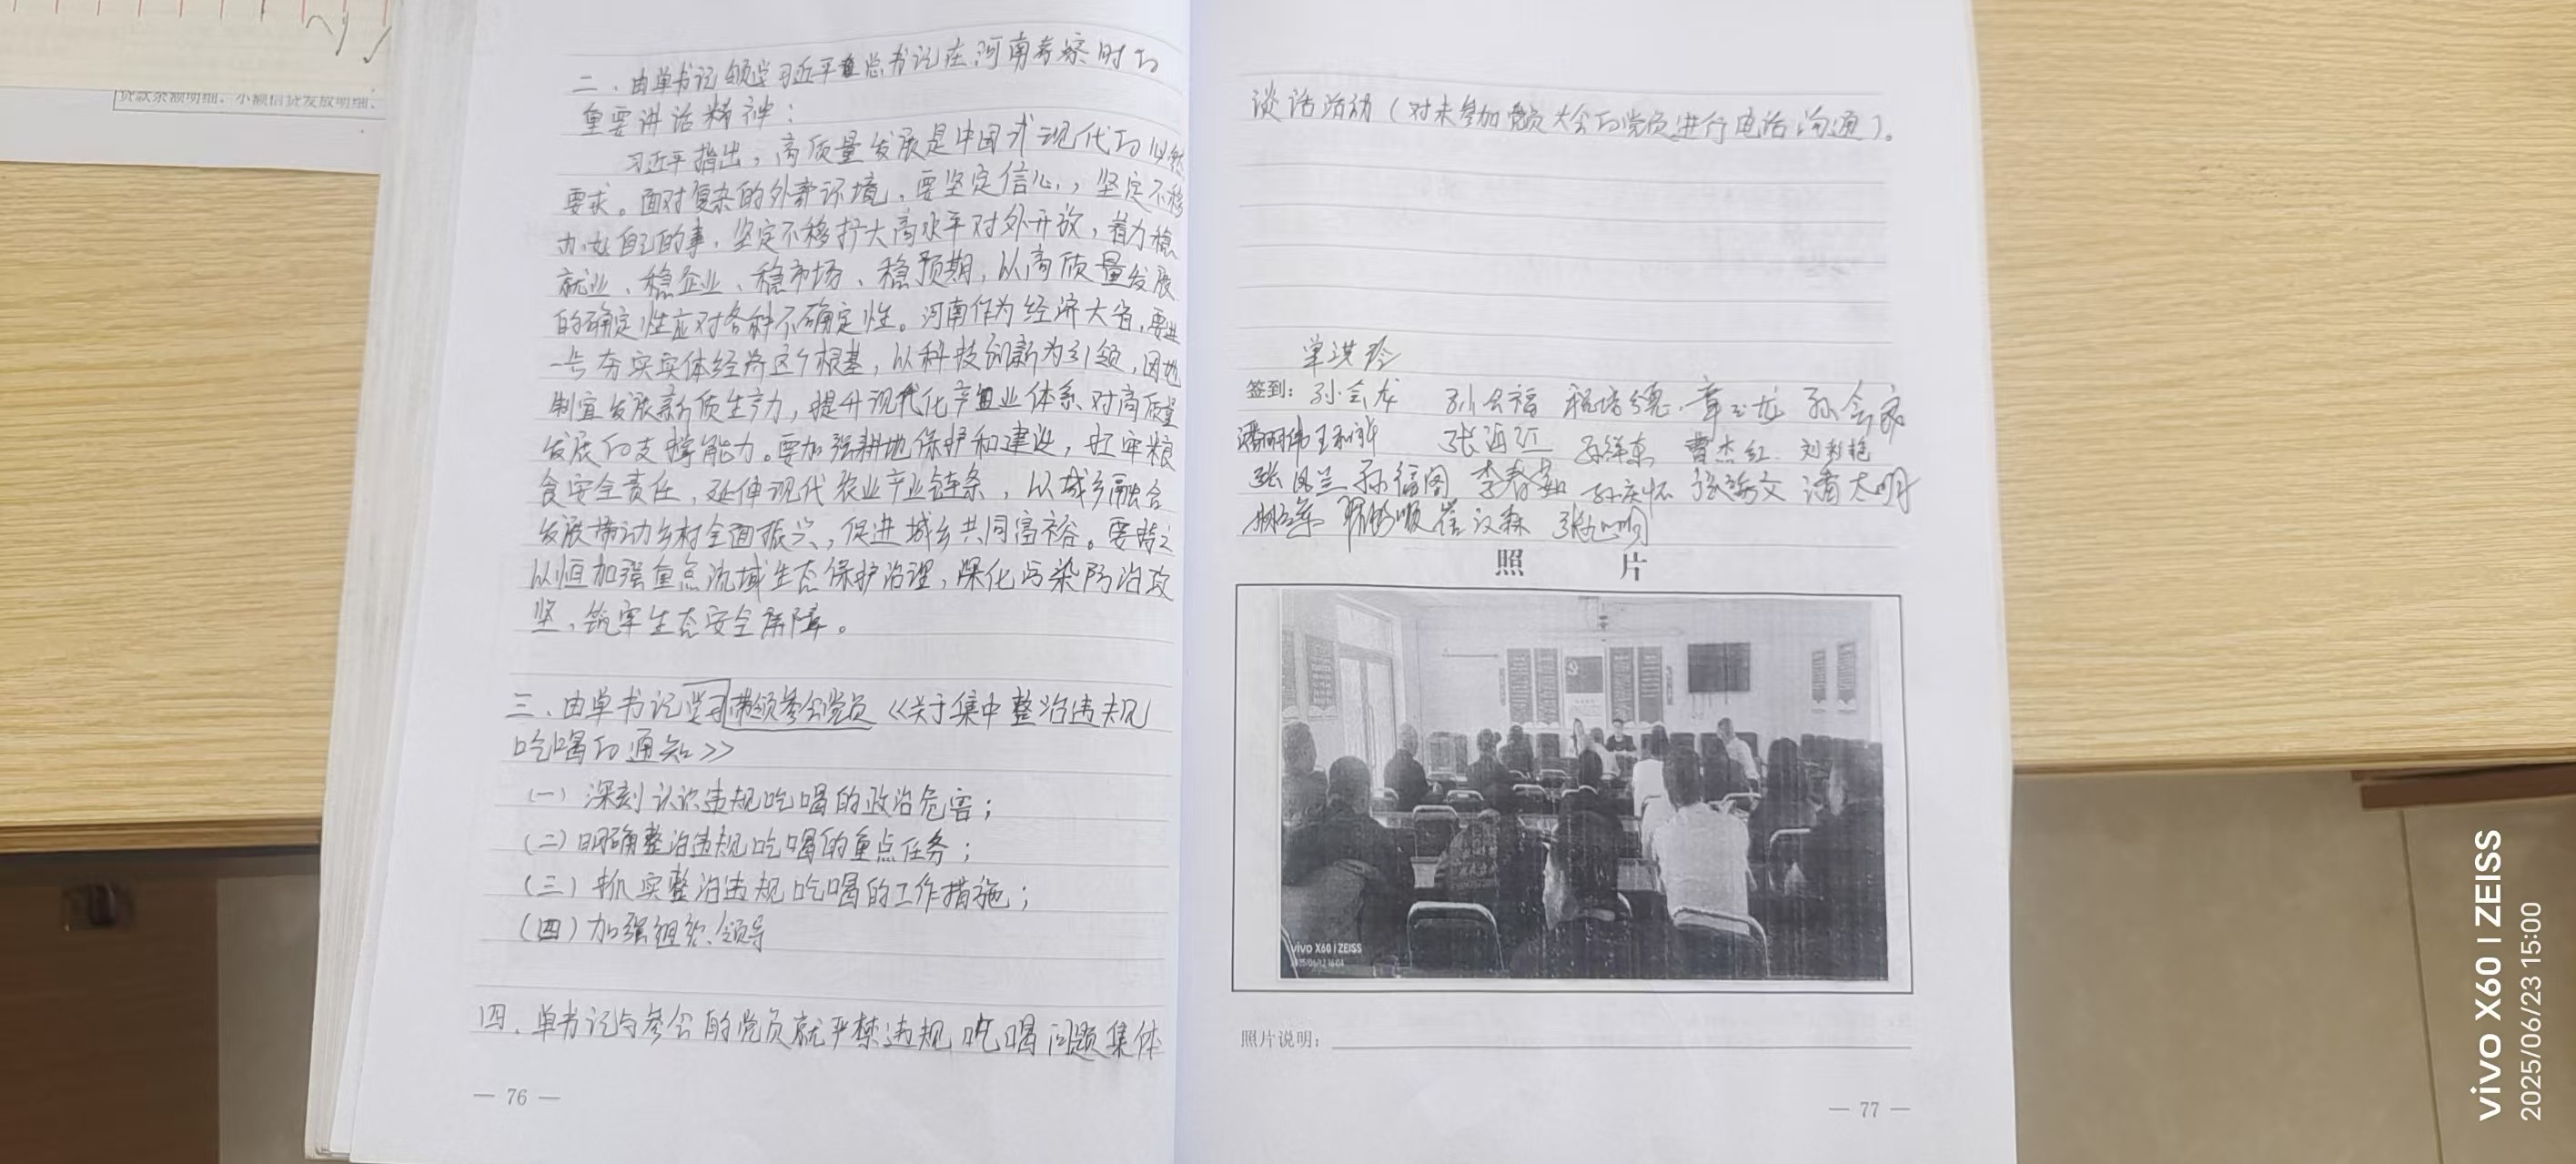 贷款余额明细、小额信贷发放明细、
二、由单书记领学习近平总书记在河南考察时的
重要讲话精神：
习近平指出，高质量发展是中国式现代的必然
要求。面对复杂的外部环境，要坚定信心，坚定不移
办好自己的事，坚定不移扩大高水平对外开放，着力稳
就业、稳企业、稳市场、稳预期，以高质量发展
的确定性应对各种不确定性。河南作为经济大省，要进
一步夯实实体经济这个根基，以科技创新为引领，因地
制宜发展新质生产力，提升现代化产业体系对高质量
发展的支撑能力。要加强耕地保护和建设，扛牢粮
食安全责任，延伸现代农业产业链条，以城乡融合
发展带动乡村全面振兴，促进城乡共同富裕。要持之
以恒加强重点流域生态保护治理，深化污染防治攻
坚，筑牢生态安全屏障。
三、由单书记带领参会党员学习《关于集中整治违规
吃喝的通知》
（一）深刻认识违规吃喝的政治危害；
（二）明确整治违规吃喝的重点任务；
（三）抓实整治违规吃喝的工作措施；
（四）加强组织领导
四、单书记与参会的党员就严禁违规吃喝问题集体
— 76 —
谈话活动（对未参加党员大会的党员进行电话沟通）。
单洪玲
签到：孙会龙 孙会福 章玉龙 孙会家
张海江 孙祥东 曹杰红 刘彩艳
张凤兰 孙信阁 李春茹 孙庆怀 潘太明
崔汉森
照 片
vivo X60 | ZEISS
2025/06/12 16:04
照片说明：
— 77 —
vivo X60 | ZEISS
2025/06/23 15:00